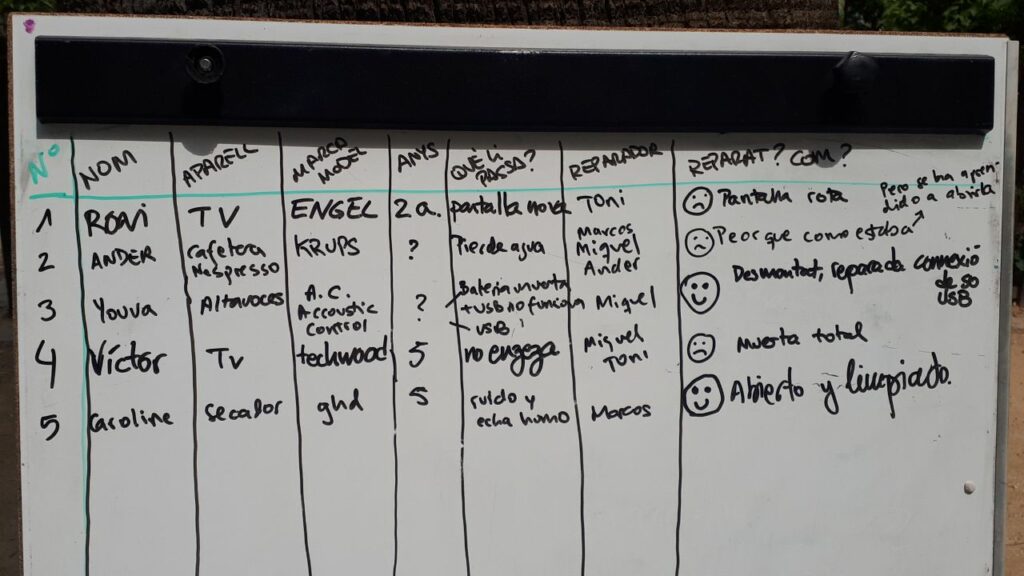 Nº NOM APARELL MARCA MODEL ANYS QUÈ LI PASSA? REPARADOR REPARAT? COM?
1 RONI TV ENGEL 2 a. pantalla nova TONi Pantalla rota
Pero se ha apren-
dido a abrirla
2 ANDER Cafetera Nespresso KRUPS ? Pierde agua Marcos Miguel Ander Peor que como estaba
3 Youva Altavoces A.C. Accoustic Control ? Bateria muerta + USB no funciona - USB Miguel Desmuntat, reparada connexió de so USB
4 Víctor TV techwood 5 no engega Miguel TONi Muerta total
5 Caroline Secador ghd 5 ruido y echa humo Marcos Abierto y limpiado.